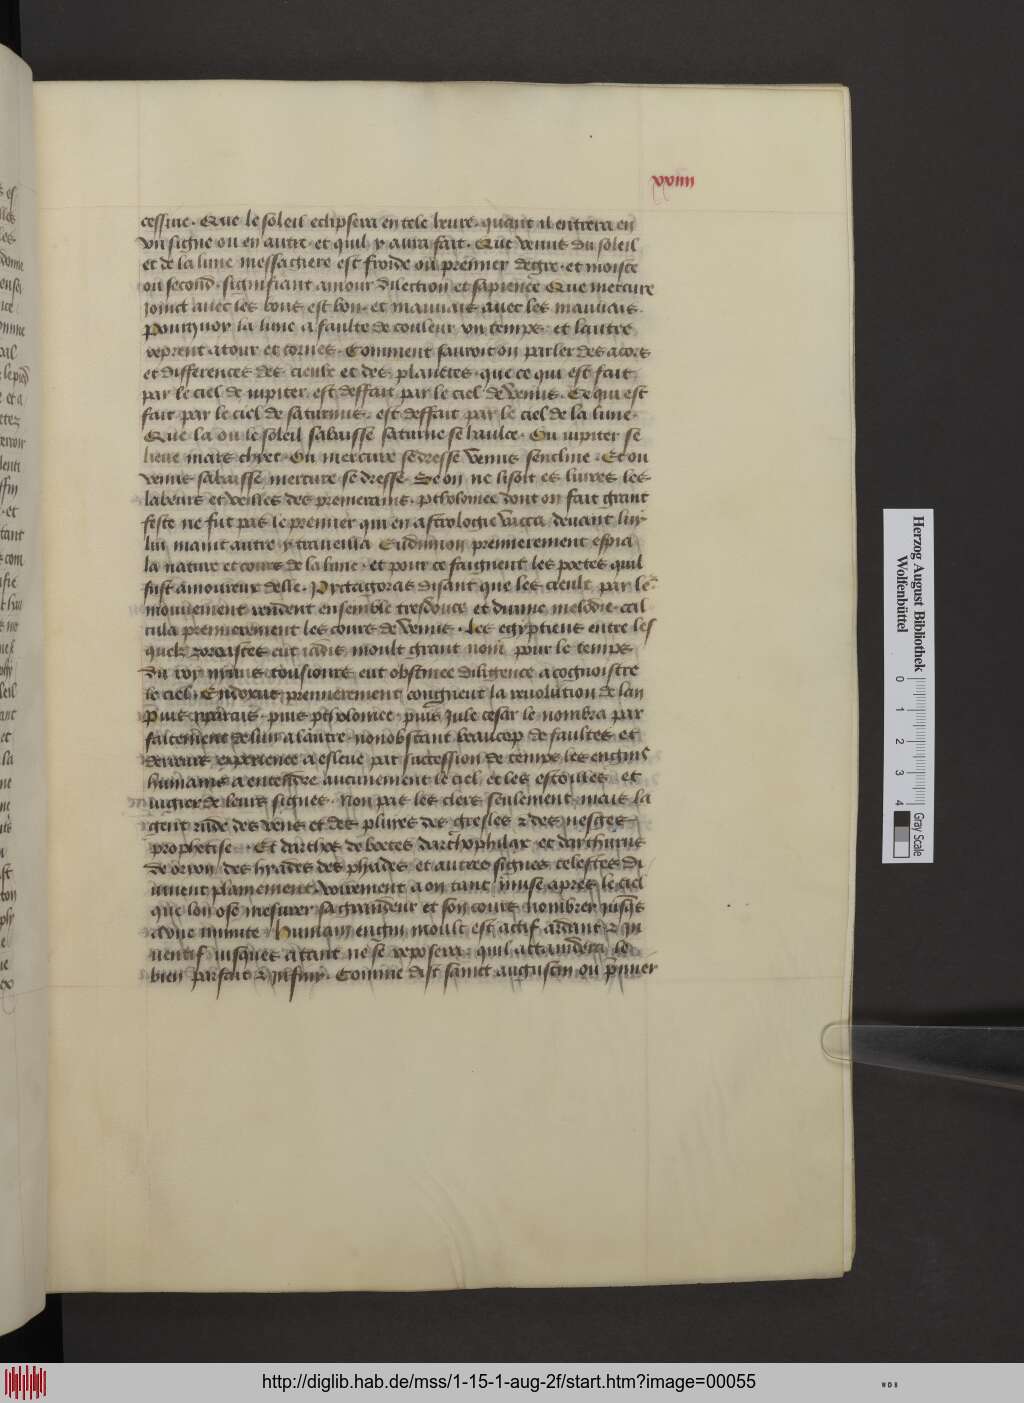 xxiiii
cessiue. Que le soleil eclipsera en tele heure. quant il entrera en
vn signe ou en autre. et quil y aura fait. Que venus du soleil
et de la lune messagiere est froide ou premier degre. et moiste
ou second. signifiant amour dilection et sapience Que mercure
joinct auec les bons est bon. et mauuais auec les mauuais.
Pourquoy la lune a faulte de couleur vn temps. et lautre
reprent atour et cornes. Comment sauroit on parler des acors
et differences des cieulx et des planetes. que ce qui est fait
par le ciel de iupiter. est deffait par le ciel de venus. Ce qui est
fait par le ciel de saturnus. est deffait par le ciel de la lune.
Que la ou le soleil sabaisse saturne se haulce. Ou iupiter se
lieue mars chiet. Ou mercure se dresse venus sencline. Et ou
venus sabaisse mercure se dresse. Se on ne lisoit es liures les
labeurs et veilles des premerains. ptholomee dont on fait grant
feste ne fut pas le premier qui en astrologie vacca. deuant luy
lui maint autre y traueilla Endimion premierement espia
la nature et cours de la lune. et pour ce faignent les poetes quil
fust amoureux delle. Pytagoras disant que les cieulx par le
mouuement rendent ensemble tresdouce et diuine melodie. cal
cula premierement les cours de venus. Les egyptiens entre les
quelz zoroastes eut iadis moult grant nom pour le temps
du roy ninus tousiours eut obstinee diligence a cognoistre
le ciel. Eudoxus premierement congneut la reuolution de lan
Puis ypparcus. puis ptholomee. puis Jule cesar le nombra par
faictement de lun a lautre. nonobstant beaucop de faultes et
derreurs experience a esleue par succession de temps les engins
humains a entendre aucunement le ciel et les estoilles. et
iugier de leurs signes. Non pas les clers seulement. mais la
gent rude des vens et des pluyes des gresles & des nesges
prophetise. Et darthos de boetes darthophilax et darthurus
de oryon. des hyades des plyades et autres signes celestes di
uinent plainement. voirement a on tant muse apres le ciel
que lon ose mesurer sa grandeur et son cours nombrer jusqs
a vne minute. Humain engin moult est actif ardant & in
uentif iusques a tant ne se reposera. quil attaindera le
bien parfait & infiny. Comme dist saint augustin ou pmier
Herzog August Bibliothek
Wolfenbüttel
0 1 2 3 4
Gray Scale
http://diglib.hab.de/mss/1-15-1-aug-2f/start.htm?image=00055
WDB